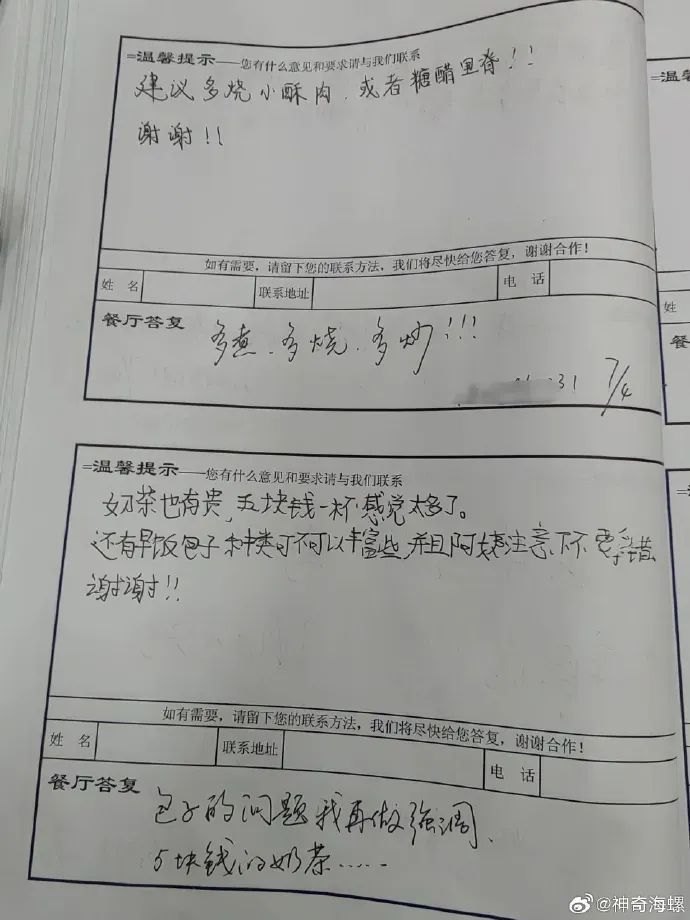 =温馨提示——您有什么意见和要求请与我们联系
建议多烧小酥肉、或者糖醋里脊!!
谢谢!!
如有需要，请留下您的联系方法，我们将尽快给您答复，谢谢合作！
姓 名 联系地址 电 话
餐厅答复
多煮、多烧、多炒!!!
31 7/4
=温馨提示——您有什么意见和要求请与我们联系
奶茶也有贵，五块钱一杯感觉太多了。
还有早饭包子种类可不可以丰富些，并且阿姨注意下不要弄错
谢谢!!
如有需要，请留下您的联系方法，我们将尽快给您答复，谢谢合作！
姓 名 联系地址 电 话
餐厅答复
包子的问题我再做强调、
5块钱的奶茶……
姓
餐
@神奇海螺